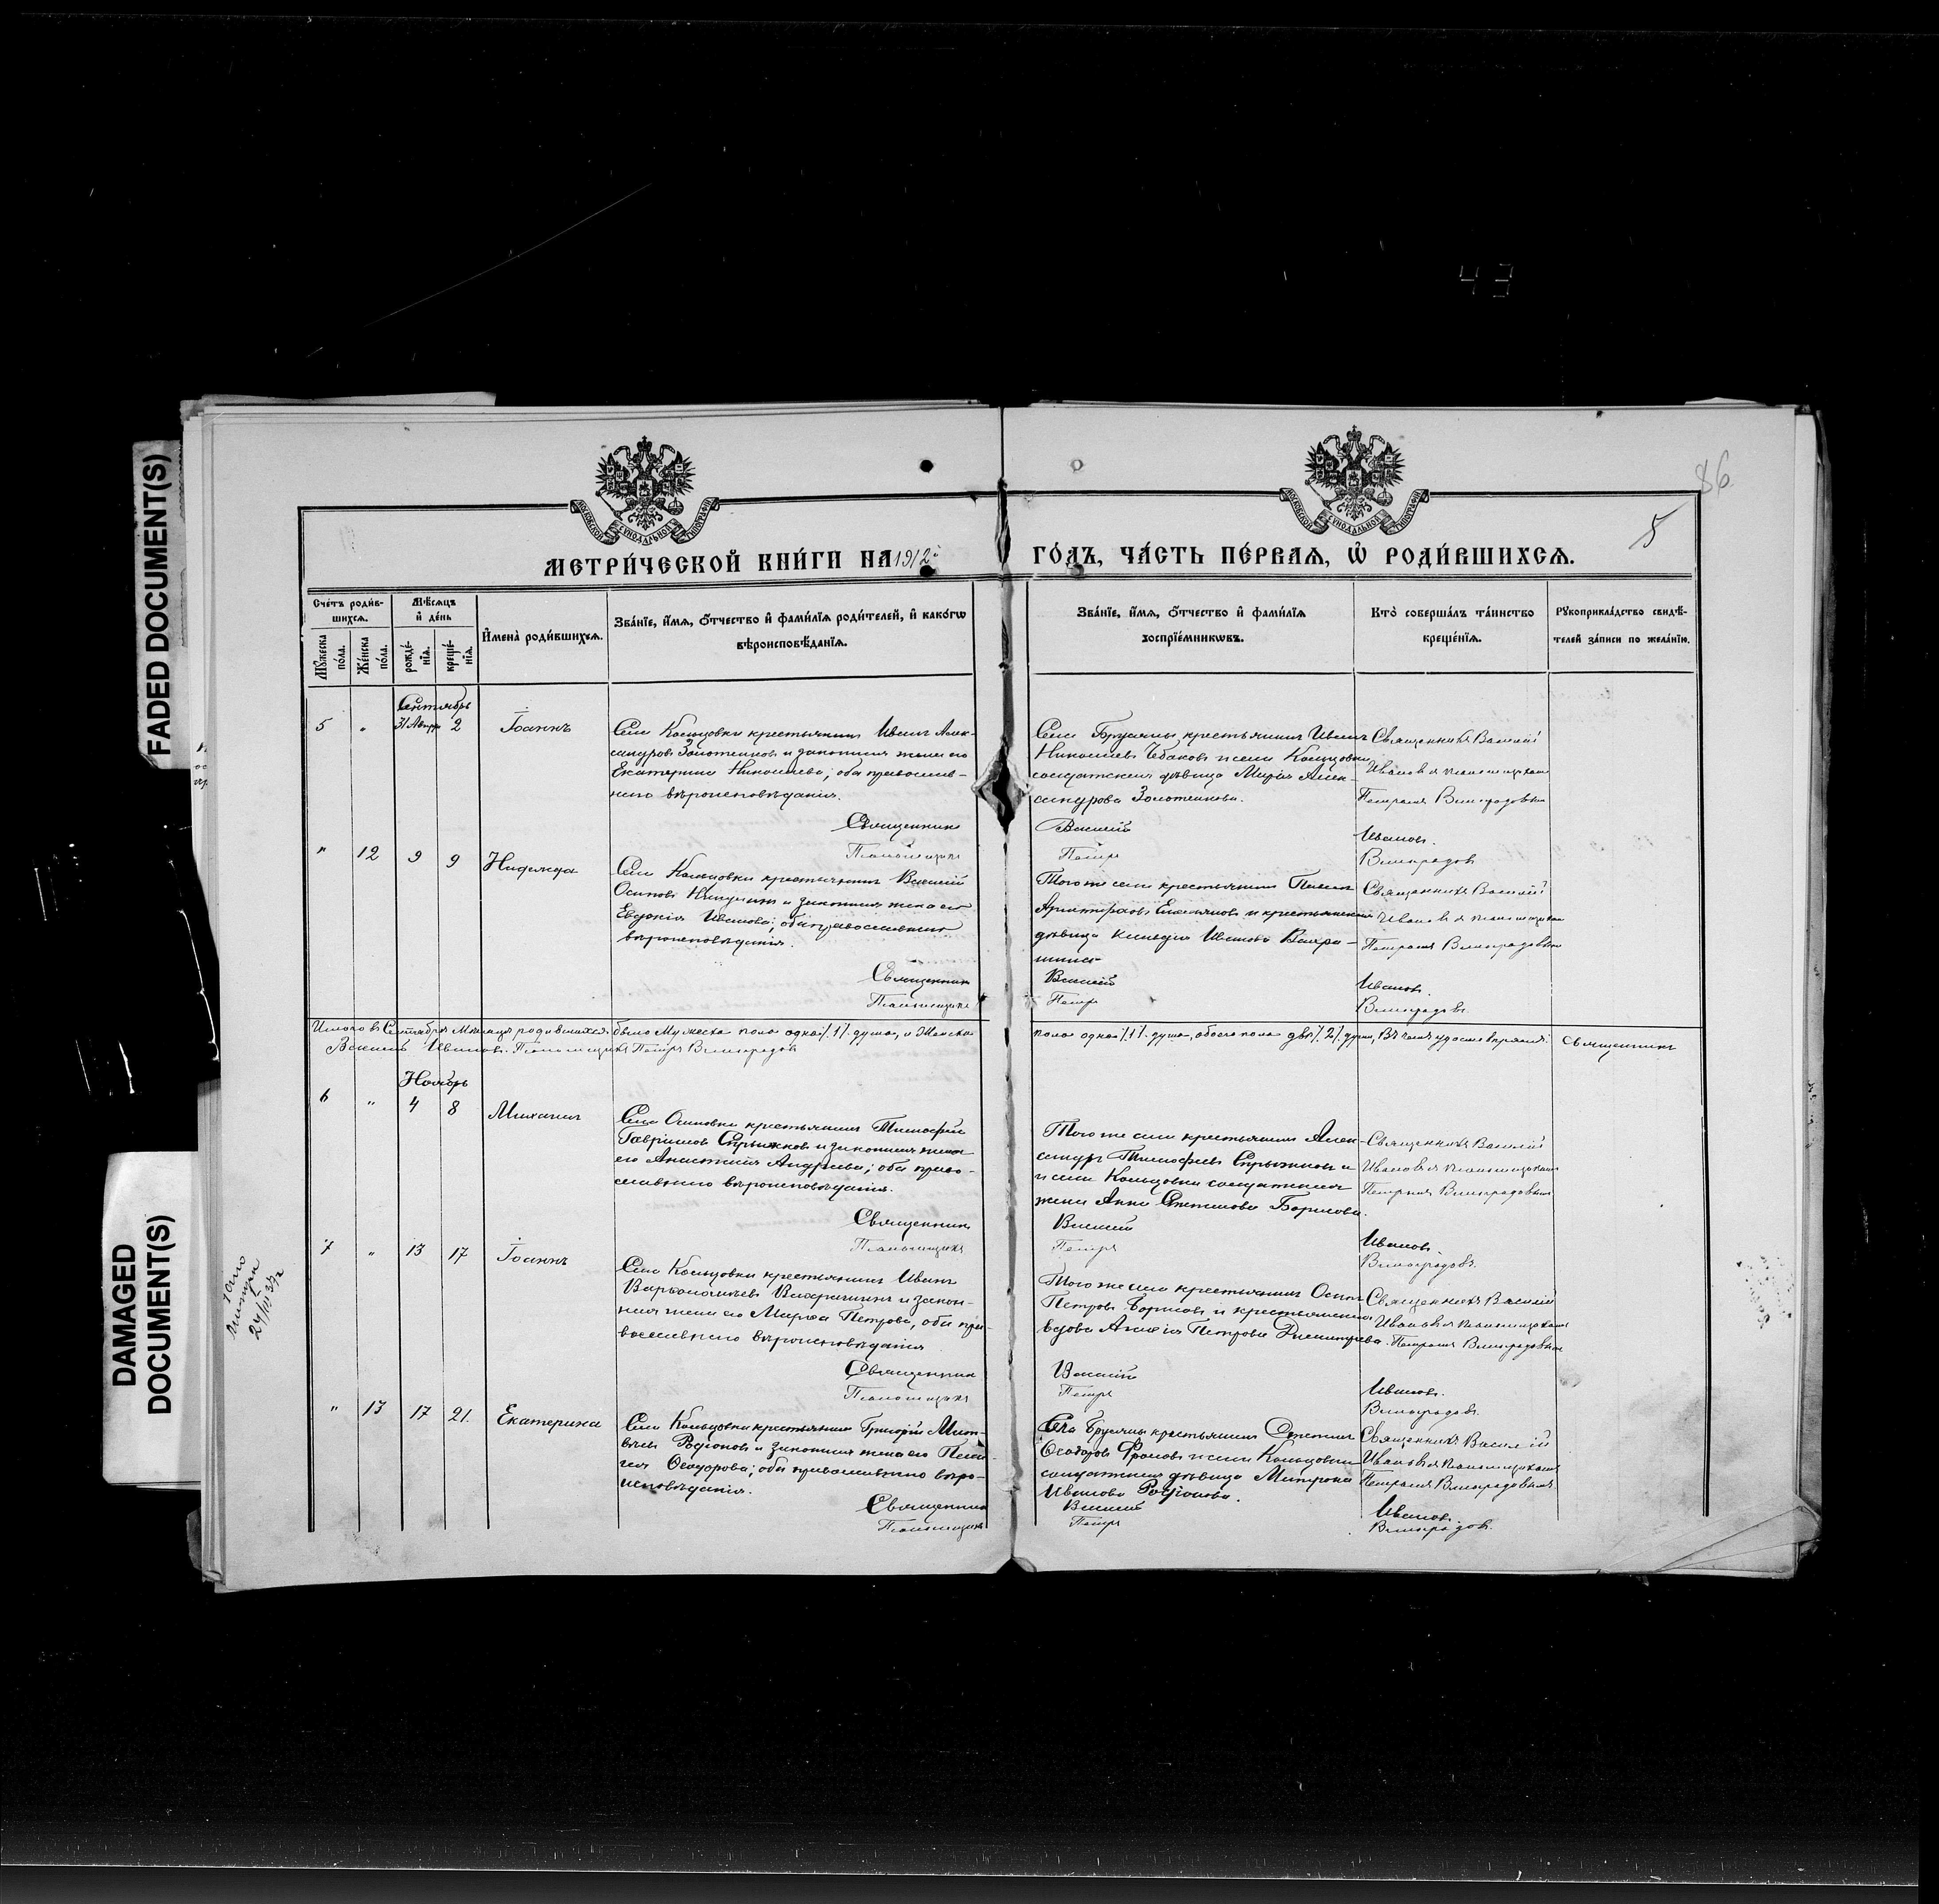 43
FADED DOCUMENT(S)
DAMAGED
DOCUMENT(S)
86
5
МОСКОВСКОЙ СѴНОДАЛЬНОЙ ТИПОГРАФІИ
МОСКОВСКОЙ СѴНОДАЛЬНОЙ ТИПОГРАФІИ
МЕТРИ́ЧЕСКОЙ КНИ́ГИ НА 1912й ГО́ДЪ, ЧА́СТЬ ПЕ́РВАЯ, Ѡ҆ РОДИ́ВШИХСѦ.
Сче́тъ роди́в-
шихсѧ.
Мꙋ́жеска по́ла.
Же́нска по́ла.
Мѣ́сѧцъ
и҆ де́нь
рожде́-
нїѧ.
креще́-
нїѧ.
И҆мена̀ роди́вшихсѧ.
Зва́нїе, и҆́мѧ, ѻ҆́тчество и҆ фами́лїѧ роди́телей, и҆ како́гѡ
вѣроисповѣ́данїѧ.
Зва́нїе, и҆́мѧ, ѻ҆́тчество и҆ фами́лїѧ
воспрїе́мникѡвъ.
Кто̀ соверша́лъ та́инство
креще́нїѧ.
Рꙋкоприкла́дство свидѣ́-
телей за́писи по жела́нїю.
Сентябрь
5 " 31 Августа 2 Іоаннъ
Села Кольцовки крестьянинъ Иванъ Алек-
сандровъ Золотенковъ и законная жена его
Екатерина Николаева; оба православ-
наго вѣроисповѣданія.
Священникъ
Псаломщикъ
Села Брусяны крестьянинъ Иванъ
Николаевъ Чебаковъ и села Кольцовки
солдатская дѣвица Марія Алек-
сандрова Золотенкова.
Василій
Петръ
Священникъ Василій
Ивановъ съ псаломщикомъ
Петромъ Виноградовымъ
Ивановъ.
Виноградовъ
" 12 9 9 Надежда
Села Кольцовки крестьянинъ Василій
Осиповъ и законная жена его
Евдокія Иванова; оба православнаго
вѣроисповѣданія.
Священникъ
Псаломщикъ
Того же села крестьянинъ
Емельяновъ и крестьянская
дѣвица Клавдія Иванова Вахра-
Василій
Петръ
Священникъ Василій
Ивановъ съ псаломщикомъ
Петромъ Виноградовымъ
Ивановъ.
Виноградовъ.
Итого въ Сентябрѣ Мѣсяцѣ родившихся было Мужеска пола одна /1/ душа, и Женска пола одна /1/ душа, обоего пола двѣ /2/ души, Въ чемъ удостовѣряемъ: Священникъ
Василій Ивановъ. Псаломщикъ Петръ Виноградовъ
Ноябрь
6 " 4 8 Михаилъ
Села Осиновки крестьянинъ Тимофей
Гавріиловъ Спрыжковъ и законная жена
его Анастасія Андреева; оба право-
славнаго вѣроисповѣданія.
Священникъ
Псаломщикъ
Того же села крестьянинъ Алек-
сандръ Тимофеевъ Спрыжковъ и
и села Кольцовки солдатская
жена Анна Степанова Борисова.
Василій
Петръ
Священникъ Василій
Ивановъ съ псаломщикомъ
Петромъ Виноградовымъ
Ивановъ.
Виноградовъ.
7 " 13 17 Іоаннъ
Села Кольцовки крестьянинъ Иванъ
Варѳоломеевъ и закон-
ная жена его Марѳа Петрова, оба пра-
вославнаго вѣроисповѣданія
Священникъ
Псаломщикъ
Того же села крестьянинъ Осипъ
Петровъ Борисовъ и крестьянская
вдова Петрова Димитріева.
Василій
Петръ
Священникъ Василій
Ивановъ съ псаломщикомъ
Петромъ Виноградовымъ
Ивановъ.
Виноградовъ.
" 13 17 21. Екатерина
Села Кольцовки крестьянинъ Григорій Мат-
вѣевъ Родіоновъ и законная жена его Пела-
гея Ѳеодорова; оба православнаго вѣро-
исповѣданія.
Священникъ
Псаломщикъ
Села Брусяны крестьянинъ Степанъ
Ѳеодоровъ Фроловъ и села Кольцовки
солдатская дѣвица Матрона
Иванова Родіонова.
Василій
Петръ
Священникъ Василій
Ивановъ съ псаломщикомъ
Петромъ Виноградовымъ
Ивановъ.
Виноградовъ.